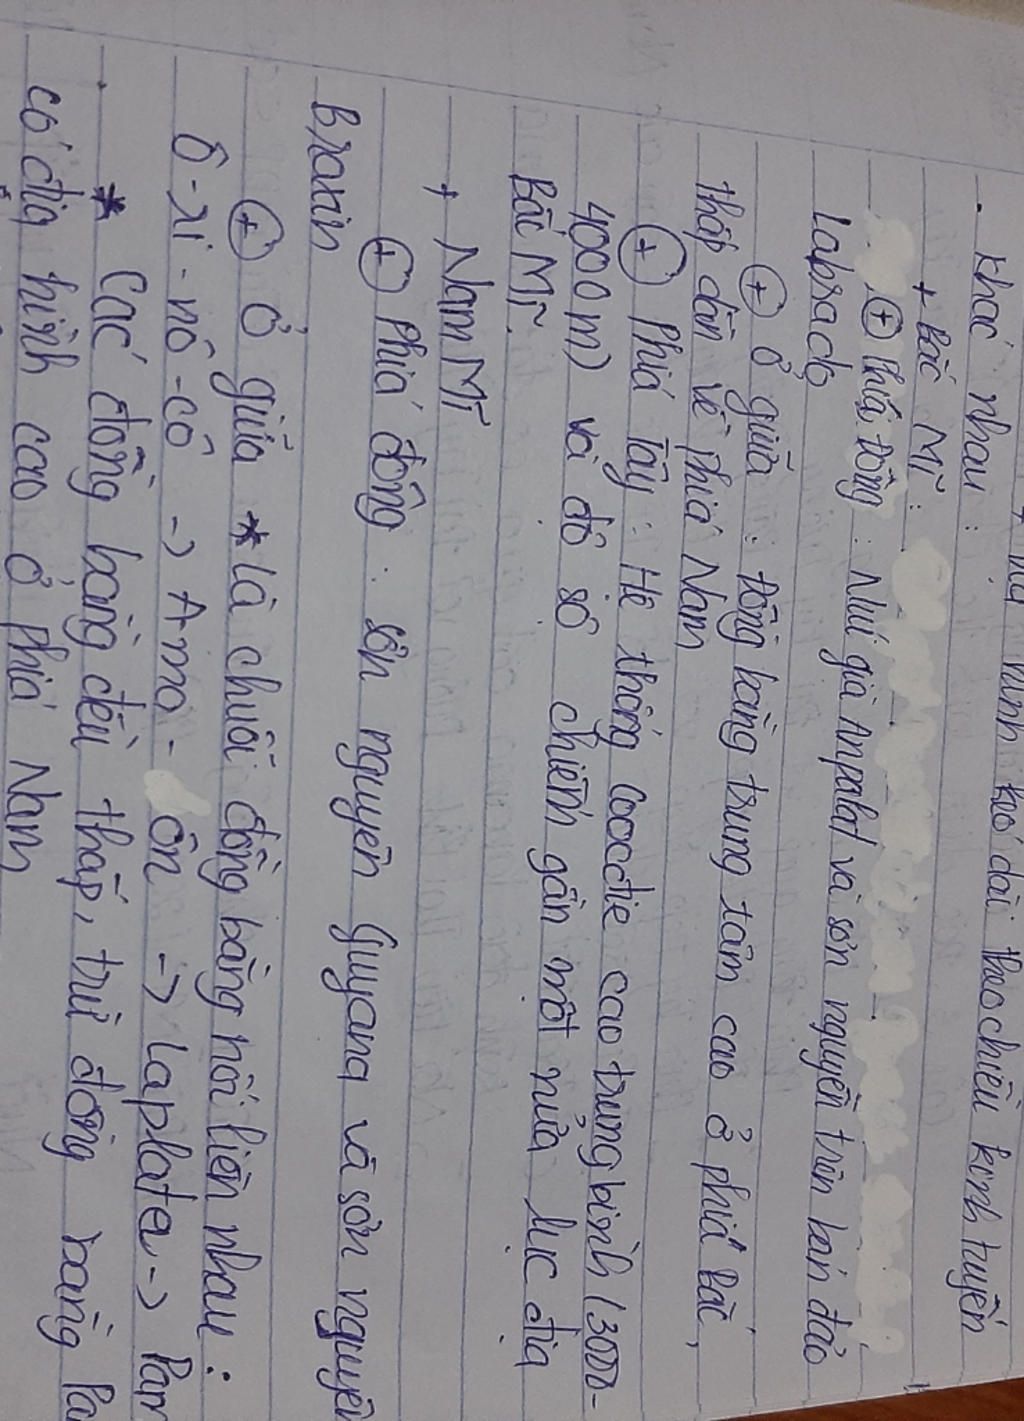 hình kéo dài theo chiều kinh tuyến
- khác nhau :
+ Bắc Mĩ :
⊕ Phía Đông : Núi già Anpalat và sơn nguyên trên bán đảo
Labrado
⊕ Ở giữa : Đồng bằng trung tâm cao ở phía Bắc,
thấp dần về phía Nam
⊕ Phía Tây : Hệ thống coocđie cao trung bình (3000-
4000m) và đồ sộ chiếm gần một nửa lục địa
Bắc Mĩ.
+ Nam Mĩ
⊕ Phía đông : sơn nguyên Guyana và sơn nguyên
Braxin
⊕ Ở giữa * là chuỗi đồng bằng nối liền nhau :
Ô-ri-nô-cô -> Ama-dôn -> Laplata -> Pam
* Các đồng bằng đều thấp, trừ đồng bằng Pa
có địa hình cao ở phía Nam